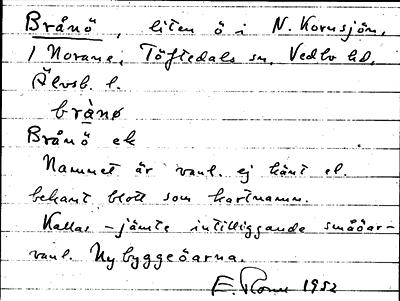 Brånö, liten ö i N. Kornsjön,
1 Norane, Töftedals sn, Vedbo hd,
Älvsb. l.
brånø
Brånö ek
Namnet är vanl. ej känt el.
bekant blott som kartnamn.
Kallas - jämte intilliggande småöar -
vanl. Nybyggeöarna.
1952